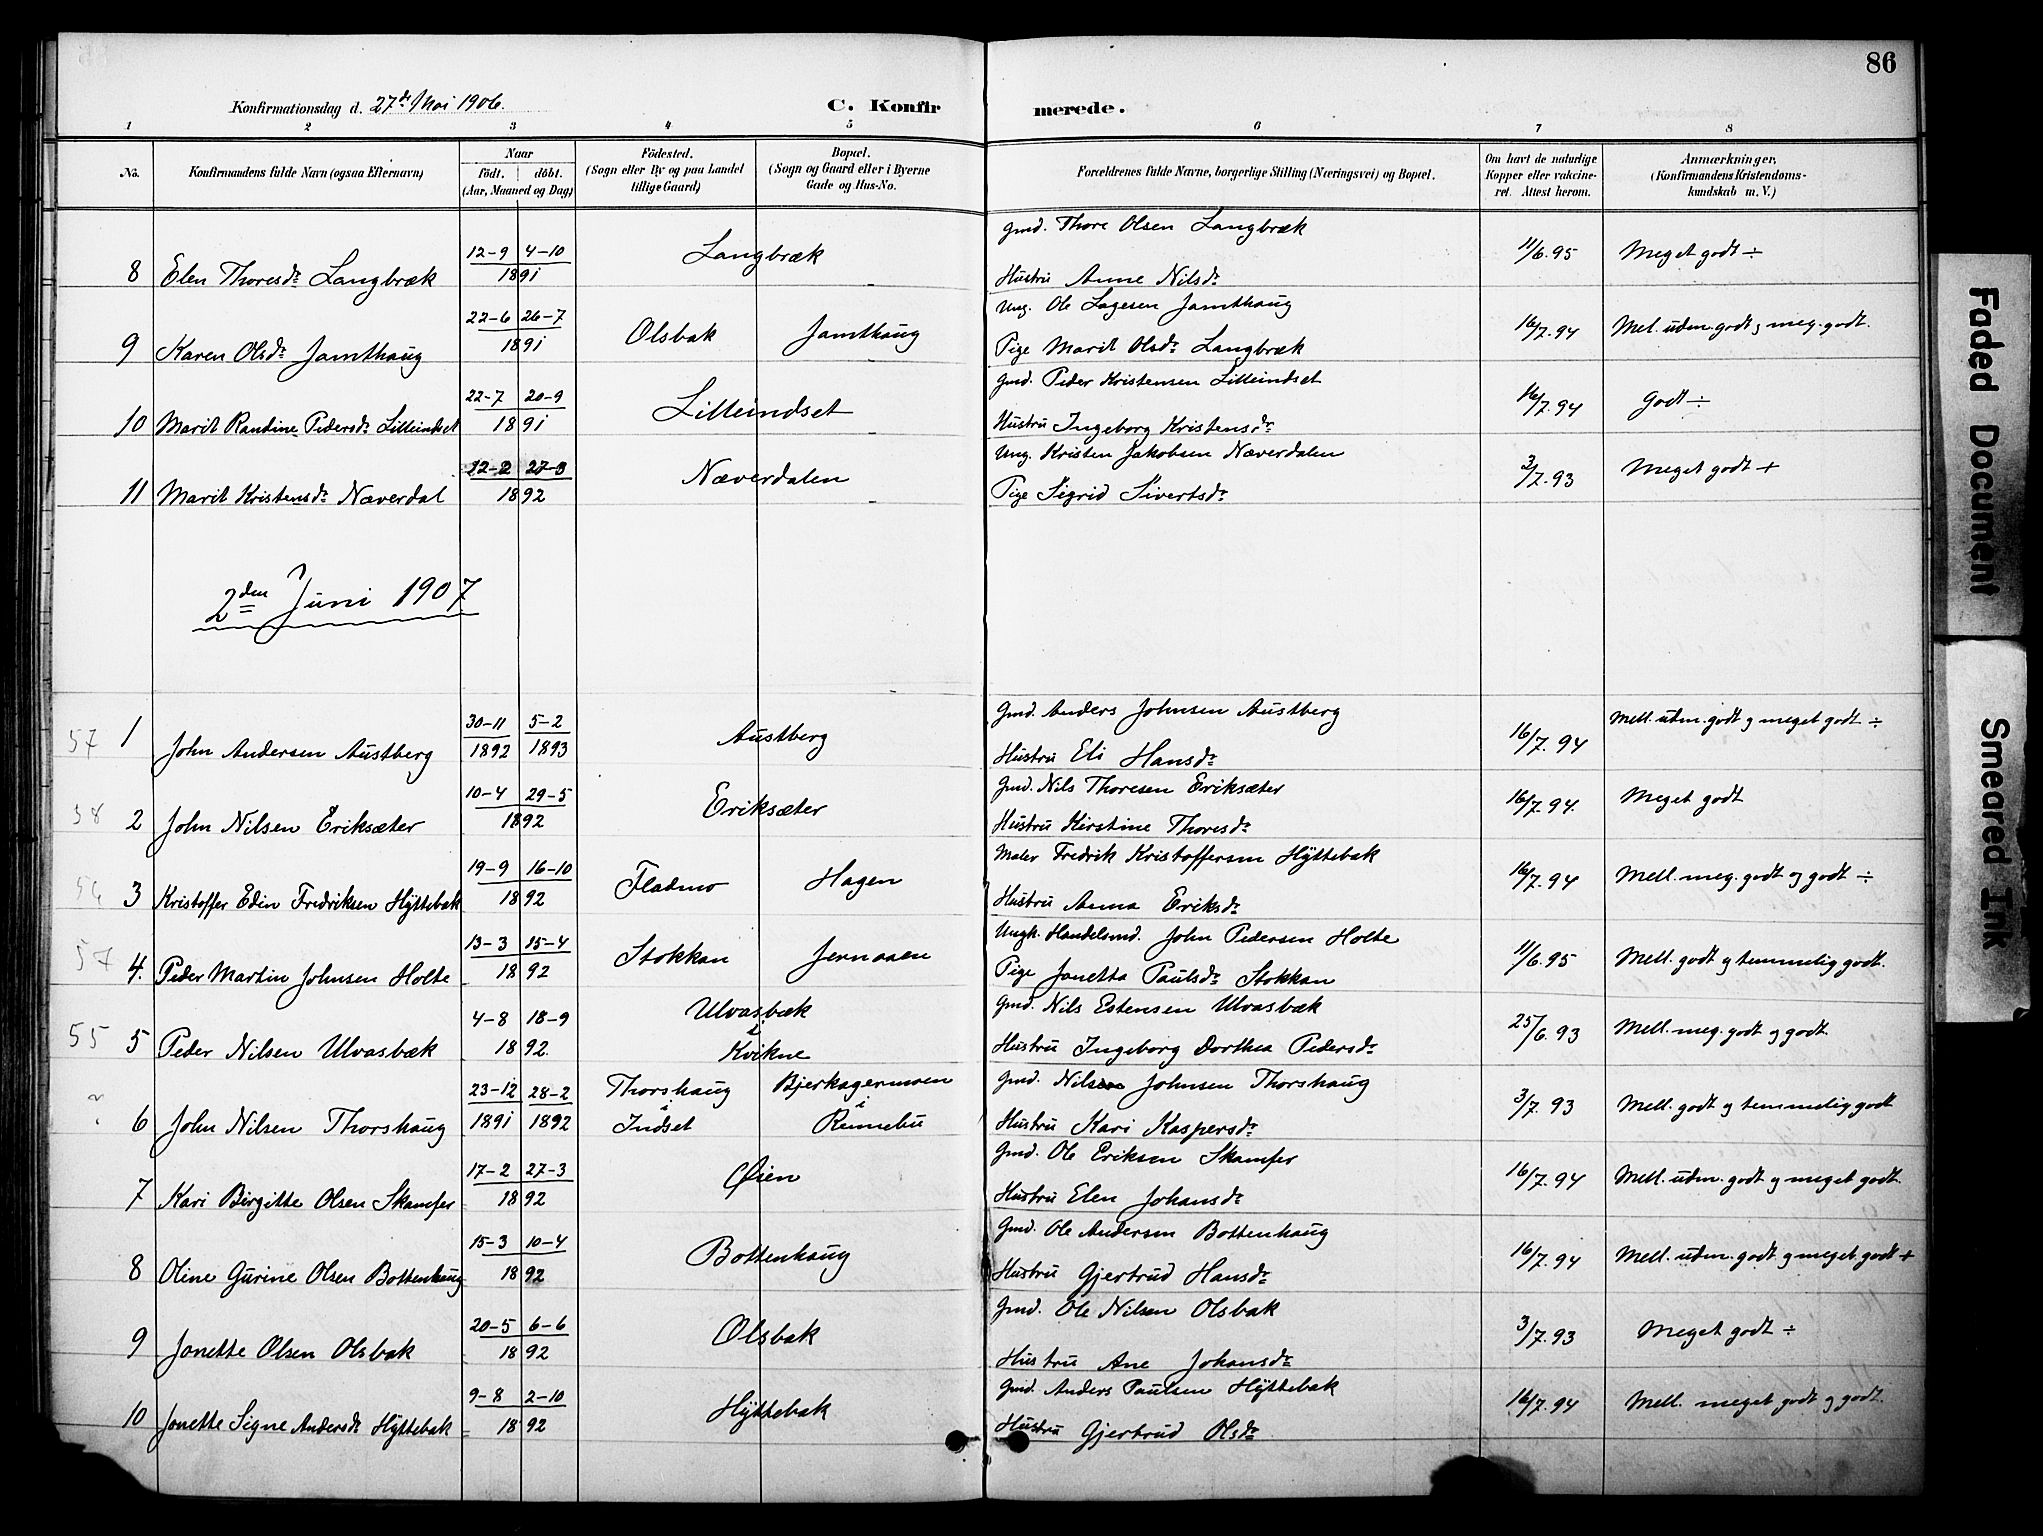 86
Konfirmationsdag d. 27de Mai 1906. C. Konfirmerede.
1 2 3 4 5 6 7 8
No. Konfirmandens fulde Navn (ogsaa Efternavn) Naar födt. döbt. (Aar, Maaned og Dag) Födested. (Sogn eller By og paa Landet tillige Gaard) Bopæl. (Sogn og Gaard eller i Byerne Gade og Hus-No. Forældrenes fulde Navne, borgerlige Stilling (Næringsvei) og Bopæl. Om havt de naturlige Kopper eller vakcineret. Attest herom. Anmærkninger, (Konfirmandens Kristendomskundskab m. V.)
8 Elen Thoresdr Langbræk 12-9 4-10 1891 Langbræk Gmd. Thore Olsen Langbræk Hustru Anne Nilsdr 11/6.95 Meget godt ÷
9 Karen Olsdr Jamthaug 22-6 26-7 1891 Olsbak Jamthaug Ung. Ole Lagesen Jamthaug Pige Marit Olsdr Langbræk 16/7.94 Mel. udm. godt og meg. godt.
10 Marit Randine Pedersdr Lilleindset 22-7 20-9 1891 Lilleindset Gmd. Peder Kristensen Lilleindset Hustru Ingeborg Kristensdr 16/7.94 Godt ÷
11 Marit Kristensdr Næverdal 12-2 27-3 1892 Næverdalen Ung. Kristen Jakobsen Næverdalen Pige Sigrid Sivertsdr 3/7.93 Meget godt +
2den Juni 1907
57 1 John Andersen Austberg 30-11 1892 5-2 1893 Austberg Gmd. Anders Johnsen Austberg Hustru Eli Hansdr 16/7.94 Mell. udm. godt og meget godt ÷
58 2 John Nilsen Eriksæter 10-4 29-5 1892 Eriksæter Gmd. Nils Thoresen Eriksæter Hustru Kirstine Thoresdr 16/7.94. Meget godt
3 Kristoffer Edin Fredriksen Hyttebak 19-9 16-10 1892 Fladmo Hagen Maler Fredrik Kristoffersen Hyttebak Hustru Anna Eriksdr 16/7.94 Mell. meg. godt og godt ÷
57 4. Peder Martin Johnsen Holte 13-3 15-4 1892 Stokkan Jernaaen Ungk. Handelsmd. John Pedersen Holte Pige Jonetta Paulsdr Stokkan 11/6.95 Mell. godt og temmelig godt.
55 5 Peder Nilsen Ulvasbæk 4-8 18-9 1892. Ulvasbæk i Kvikne Gmd. Nils Estensen Ulvasbæk Hustru Ingeborg Dorthea Pedersdr 25/6.93 Mell. meg. godt og godt.
6 John Nilsen Thorshaug 23-12 1891 28-2 1892 Thorshaug i Indset Bjerkagermoen i Rennebu Gmd. Nils Johnsen Thorshaug Hustru Kari Kaspersdr 3/7.93 Mell. godt og temmelig godt
7 Kari Birgitte Olsen Skamfer 17-2 27-3 1892 Øien Gmd. Ole Eriksen Skamfer Hustru Elen Johansdr 16/7.94 Mell. udm. godt og meget godt.
8 Oline Gurine Olsen Bottenhaug 15-3 10-4 1892 Bottenhaug Gmd. Ole Andersen Bottenhaug Hustru Gjertrud Hansdr 16/7.94 Mell. udm. godt og meget godt +
9 Jonette Olsen Olsbak 20-5 6-6 1892 Olsbak Gmd. Ole Nilsen Olsbak Hustru Ane Johansdr 3/7.93 Meget godt ÷
10 Jonette Signe Andersdr Hyttebak 9-8 2-10 1892 Hyttebak Gmd. Anders Paulsen Hyttebak Hustru Gjertrud Olsdr 16/7.94 Mell. meget godt og godt.
Faded Document
Smeared Ink